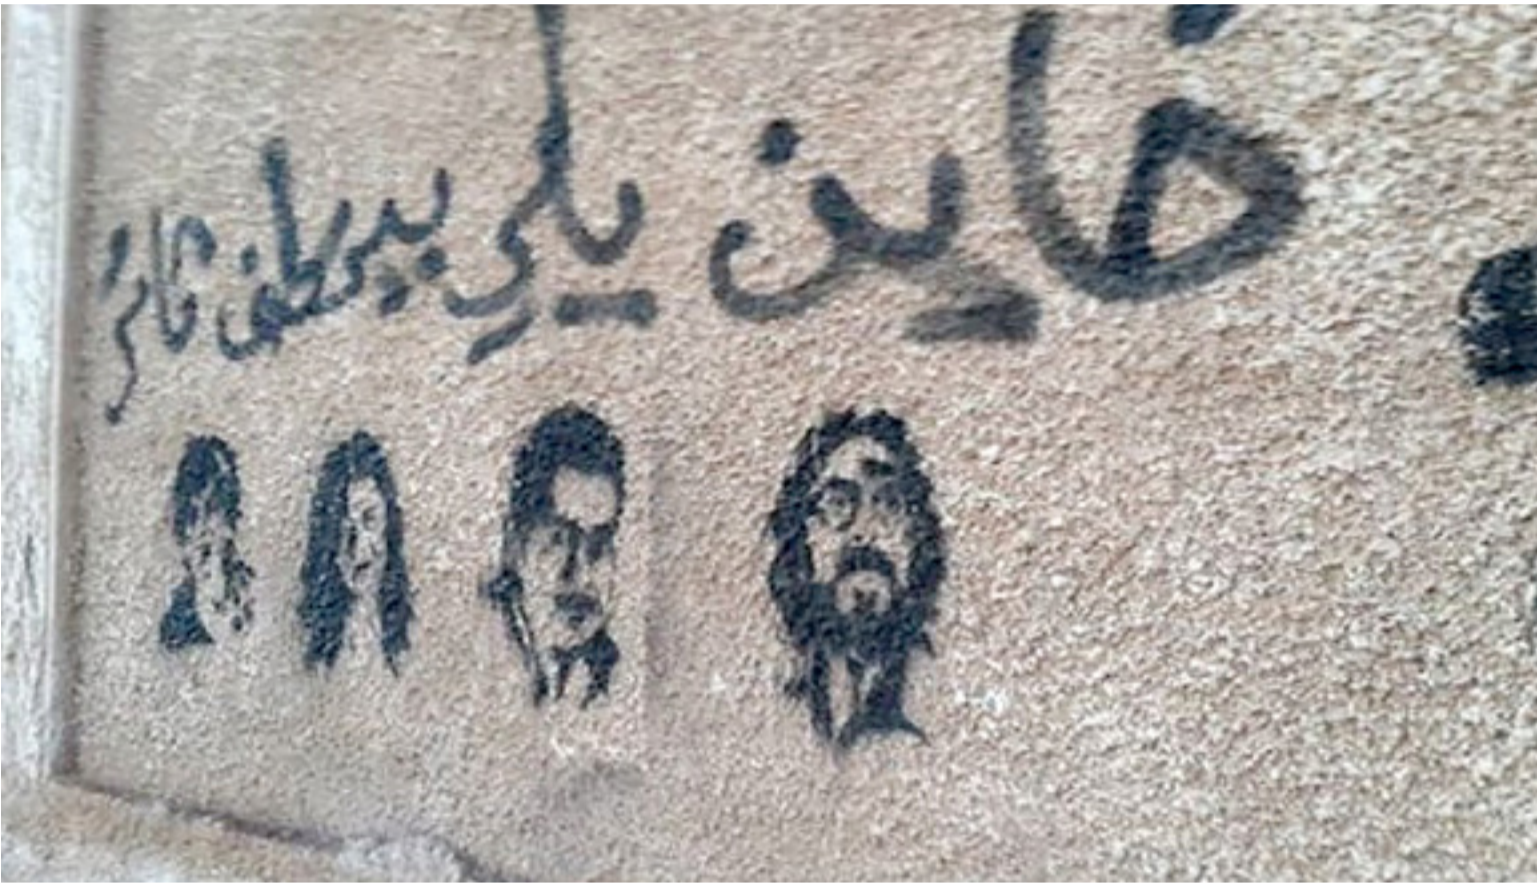 خاين يلي بيخطف ثائر